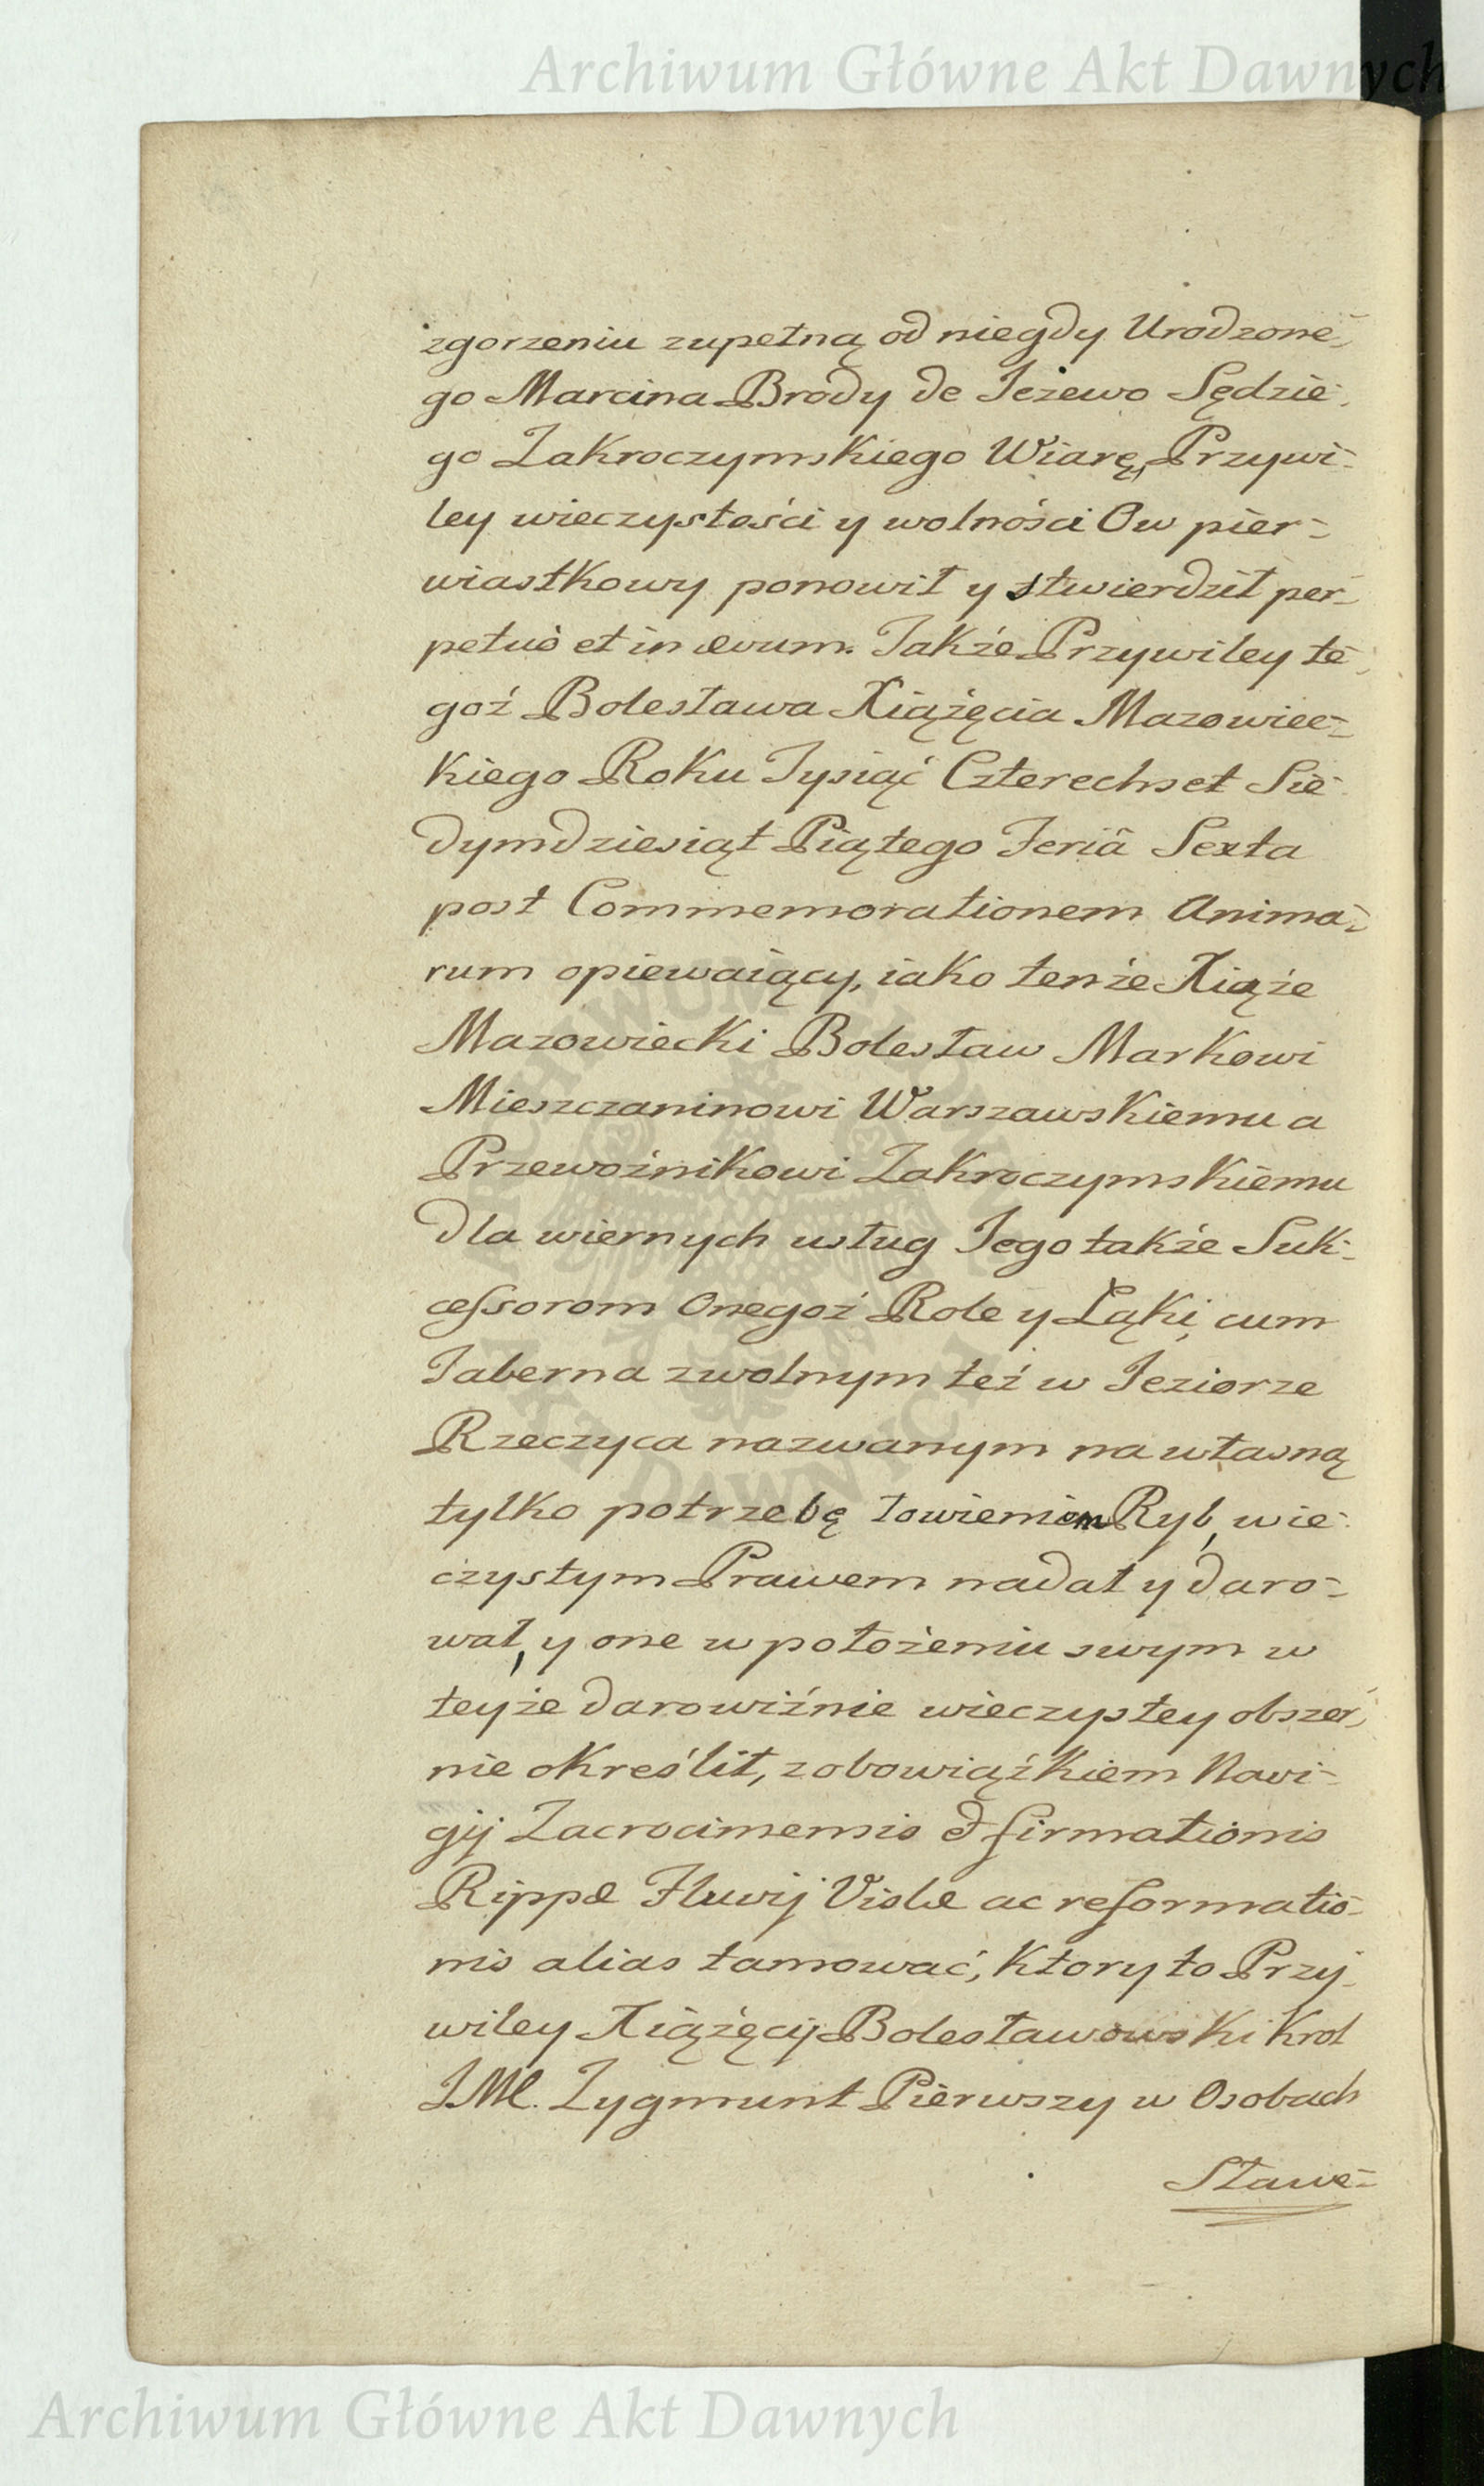 Archiwum Główne Akt Dawnych
zgorzeniu zupełną od niegdy Urodzone-
go Marcina Brody de Jeżewo Sędzie-
go Zakroczymskiego Wiarę, Przywi-
ley wieczystości y wolności Ow pier-
wiastkowy ponowił y stwierdził per-
petuo et in ævum. Także Przywiley te-
goż Bolesława Xiążęcia Mazowiec-
kiego Roku Tysiąć Czterechset Sie-
dymdziesiąt Piątego Feriâ Sexta
post Commemorationem Anima-
rum opiewaiący, iako tenże Xiąże
Mazowiecki Bolesław Markowi
Mieszczaninowi Warszawskiemu a
Przewoźnikowi Zakroczymskiemu
dla wiernych usług Jego także Suk-
cessorom Onegoż Role y Łąki, cum
Taberna z wolnym też w Jeziorze
Rzeczyca nazwanym na własną
tylko potrzebę łowieniem Ryb, wie-
czystym Prawem nadał y daro-
wał, y one w położeniu swym w
teyże darowiźnie wieczystey obszer-
nie określił, z obowiązkiem Navi-
gij Zacrocimensis et firmationis
Rippæ Fluvij Vislæ ac reformatio-
nis alias tamować, Ktory to Przy-
wiley Xiążęcy Bolesławowski Krol
JMĆ. Zygmunt Pierwszy w Osobach
Sławe-
Archiwum Główne Akt Dawnych
ARCHIWUM GŁÓWNE
AKT DAWNYCH